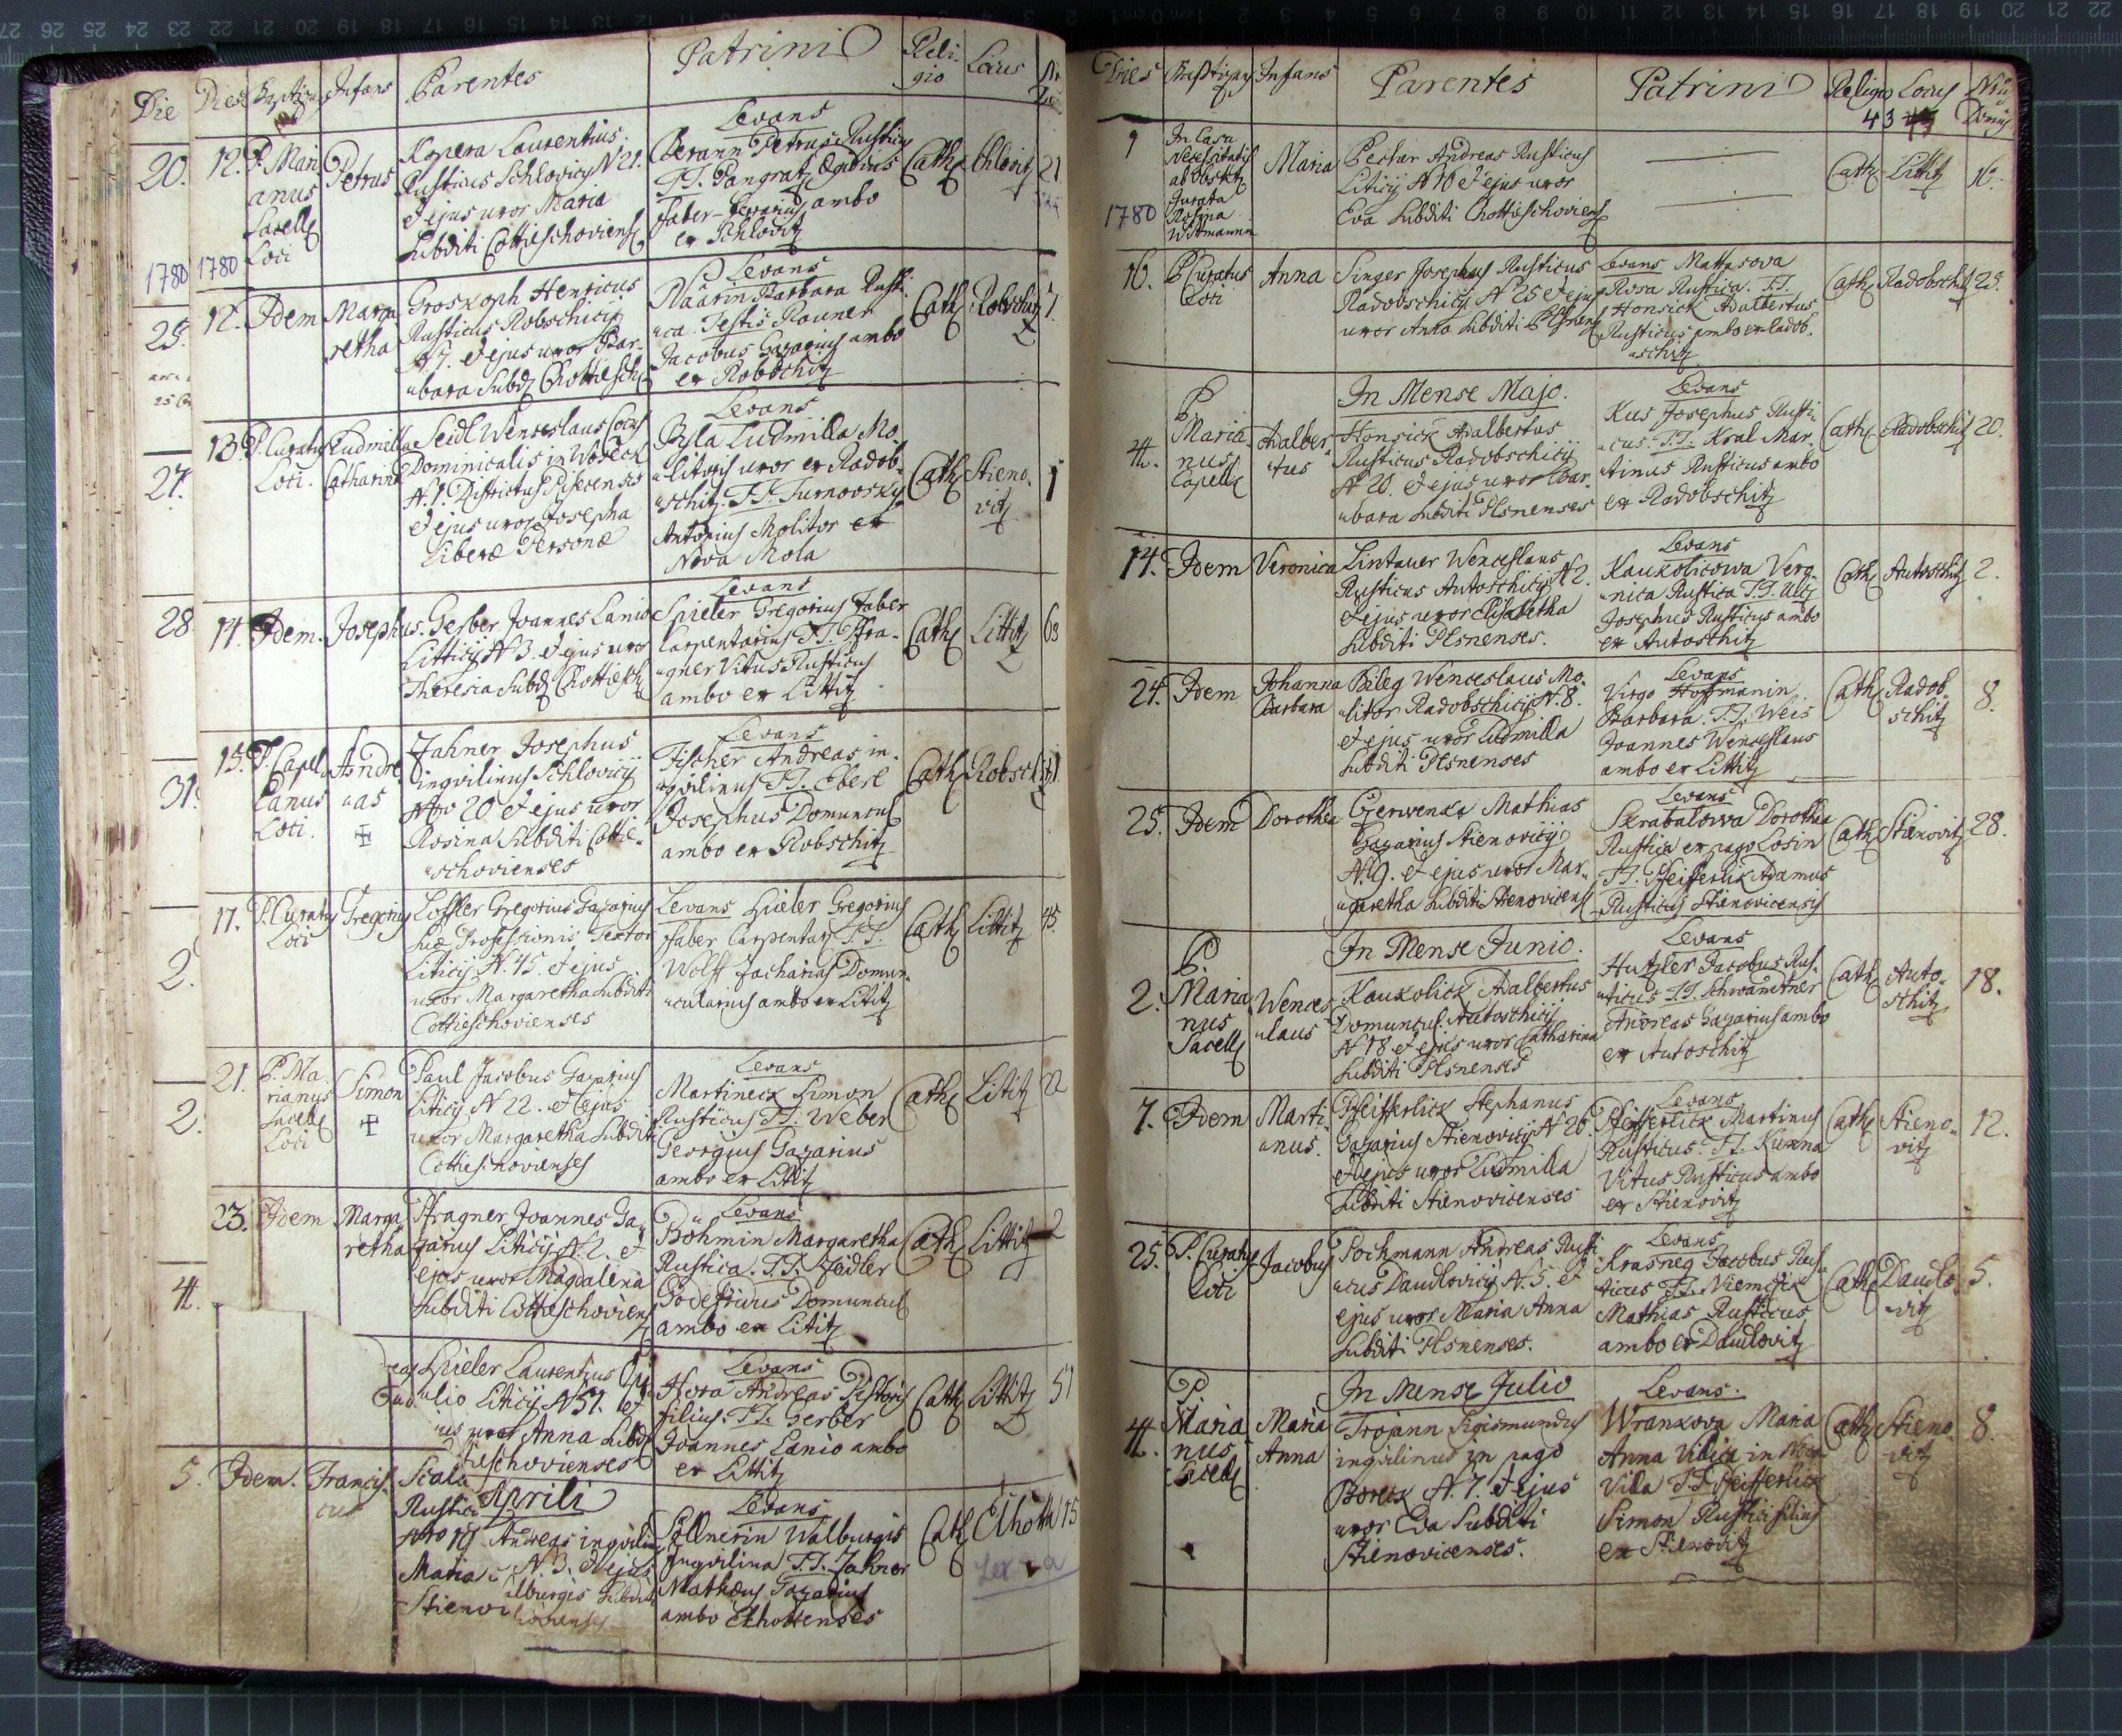 Die
20.
1780
25.
27.
28
31.
2.
2.
4.
Dies
Infans
Parentes
Patrini
Reli-
gio
Locus
12.
P. Mari
anus
Sacell
Loci
1780
Petrus
Kopera Laurentius
Rusticus Schlovicij N 21.
et ejus uxor Maria
Subditi Cottieschoviens
Levans
Berann Petrus Rusticus
T.T. Pangratz Egidius
faber - Gazarius ambo
ex Schlovitz
Cath
Chlovitz
21
12.
Idem
Marga
retha
Groskoph Henricus
Rusticus Robschicij
N 7. et ejus uxor Bar-
bara Subd Chottiesch
Levans
Barbara Rusti-
ca. Testis Rauner
Jacobus Gazarius ambo
ex Robschitz
Cath
Robschitz
7.
13.
P. Curatus
Loci.
Ludmilla
Catharina
Seidl Wenceslaus
Dominicalis in Woseck
N. 1. Districtus
et ejus uxor Josepha
Liberæ Personæ
Levans
Byla Ludmilla Mo-
litoris uxor ex Radob-
schitz. T.T. Turnovsky
Antonius Molitor ex
Nova Mola
Cath
Stieno-
vitz
1
14.
Idem.
Josephus.
Gerber Joannes Lanio
Litticij N 3. et ejus uxor
Theresia Subd Chottiesch
Levans
Spieler Gregorius Faber
Carpentarius T.T. Pfra-
gner Vitus Rusticus
ambo ex Littitz
Cath
Littitz
63
15.
P. Capel
lanus
Loci.
Andre
as
Jahner Josephus
inqvilinus Schlovicij
Nro 20 et ejus uxor
Rosina Subditi Cottie-
schovienses
Levans
Fischer Andreas in-
qvilinus T.T. Eberl
Josephus Domuncul
ambo ex Robschitz
Cath
Robsch
17.
P. Curatus
Loci
Gregorius
Löffler Gregorius Gazarius
suæ Professionis Textor
Liticij N. 45. et ejus
uxor Margaretha Subditi
Cottieschovienses
Levans Spieler Gregorius
faber Carpentar T.T.
Wolff Zacharias Domun-
cularius ambo ex Lititz
Cath
Littitz
45.
21.
P. Ma-
rianus
Sacell
Loci
Simon
Paul Jacobus Gazarius
Liticij N 22. et ejus
uxor Margaretha Subditi
Cottieschovienses
Levans
Martineck Simon
Rusticus T.T. Weber
Georgius Gazarius
ambo ex Littitz
Cath
Lititz
22
23.
Idem
Marga
retha
Pfragner Joannes Ga-
zarius Liticij N. 2. et
ejus uxor Magdalena
Subditi Cottieschoviens
Levans
Böhmin Margaretha
Rustica. T.T. Zeidler
Godefridus Domuncul
ambo ex Lititz
Cath
Littitz
2
Spieler Laurentius
Liticij N 51. et
uxor Anna Subd
tieschovienses
Levans
Hora Andreas Pistoris
filius. T.T. Gerber
Joannes Lanio ambo
ex Littitz
Cath
Littitz
51
5.
Idem.
Francis-
cus
Scala
Rustic
Nro 19
Maria
Stienovi
Aprili
Andreas inqvilin
N. 3. et ejus
lburgis Subditi
Levans
Söllnerin Walburgis
Inqvilina T.T. Jahner
Mathæus Gazarius
ambo Elhottenses
Cath
Elhotta
15
Dies
Infans
Parentes
Patrini
Religio
Locus
43
Domus
9
1780
In Casu
Necessitatis
ab Obstetr
Jurata
Rosina
Widmannin
Maria
Pechar Andreas Rusticus
Liticij N 16 et ejus uxor
Eva Subditi Chottieschoviens
Cath
Littitz
16.
16.
P Curatus
Loci
Anna
Singer Josephus Rusticus
Radobschicij N 25 et ejus
uxor Anna Subditi Plsnens
Levans Mattasova
Rosa Rustica. T.T.
Honsick Adalbertus
Rusticus ambo ex Radob-
schitz
Cath
Radobschitz
25.
In Mense Majo.
4.
P.
Maria-
nus
Capell
Adalber-
tus
Honsick Adalbertus
Rusticus Radobschicij
N 20. et ejus uxor Bar-
bara Subditi Plsnenses
Levans
Kus Josephus Rusti-
cus. T.T. Kral Mar-
tinus Rusticus ambo
ex Radobschitz
Cath
Radobschitz
20.
14.
Idem
Veronica
Lintauer Wenceslaus
Rusticus Autoschicij N 2.
et ejus uxor Elisabetha
Subditi Plsnenses.
Levans
Kaukolicowa Vero-
nica Rustica T.T. Ultz
Josephus Rusticus ambo
ex Autoschitz
Cath
Autoschitz
2.
24.
Idem
Johanna
Barbara
Bileg Wenceslaus Mo-
litor Radobschicij N. 8.
et ejus uxor Ludmilla
Subditi Plsnenses
Levans
Virgo Hoffmanin
Barbara. T.T. Weis
Joannes Wenceslaus
ambo ex Littitz
Cath
Radob-
schitz
8.
25.
Idem
Dorothea
Czerwenka Mathias
Gazarius Stienovicij
N. 9. et ejus uxor Mar-
garetha Subditi Stienoviens
Levans
Skrabalowa Dorothea
Rustica ex pago Losin
T.T. Pfeifferlik Adamus
Rusticus Stienovicensis
Cath
Stienovitz
28.
In Mense Junio.
2.
P.
Maria
nus
Sacell
Wences-
laus
Kaukolick Adalbertus
Domuncul. Autoschicij
N 18 et ejus uxor Catharina
Subditi Plsnenses
Levans
Hutzler Jacobus Rus-
ticus T.T. Schwamtner
Andreas Gazarius ambo
ex Autoschitz
Cath
Auto-
schitz
18.
7.
Idem
Marti-
nus.
Pfeifferlick Stephanus
Gazarius Stienovicij N 26.
et ejus uxor Ludmilla
Subditi Stienovicenses
Levans
Pfeifferlick Martinus
Rusticus. T.T. Kunna
Vitus Rusticus ambo
ex Stienovitz
Cath
Stieno-
vitz
12.
25.
P. Curatus
Loci
Jacobus
Pochmann Andreas Rusti
cus Daudlovicij N. 5. et
ejus uxor Maria Anna
Subditi Plsnenses.
Levans
Krasneg Jacobus Rus-
ticus T.T. Niemetsik
Mathias Rusticus
ambo ex Daudlovitz
Cath
Daudlo-
vitz
5.
In Mense Julio
4.
P.
Maria
nus
Sacell
Maria
Anna
Trojann Sigismundus
inqvilinus in pago
Boreck N. 7. et ejus
uxor Eva Subditi
Stienovicenses.
Levans.
Wrankova Maria
Anna Vilica in Nova
Villa T.T. Pfeifferlick
Simon Rustici filius
ex Stienovitz
Cath
Stieno-
vitz
8.